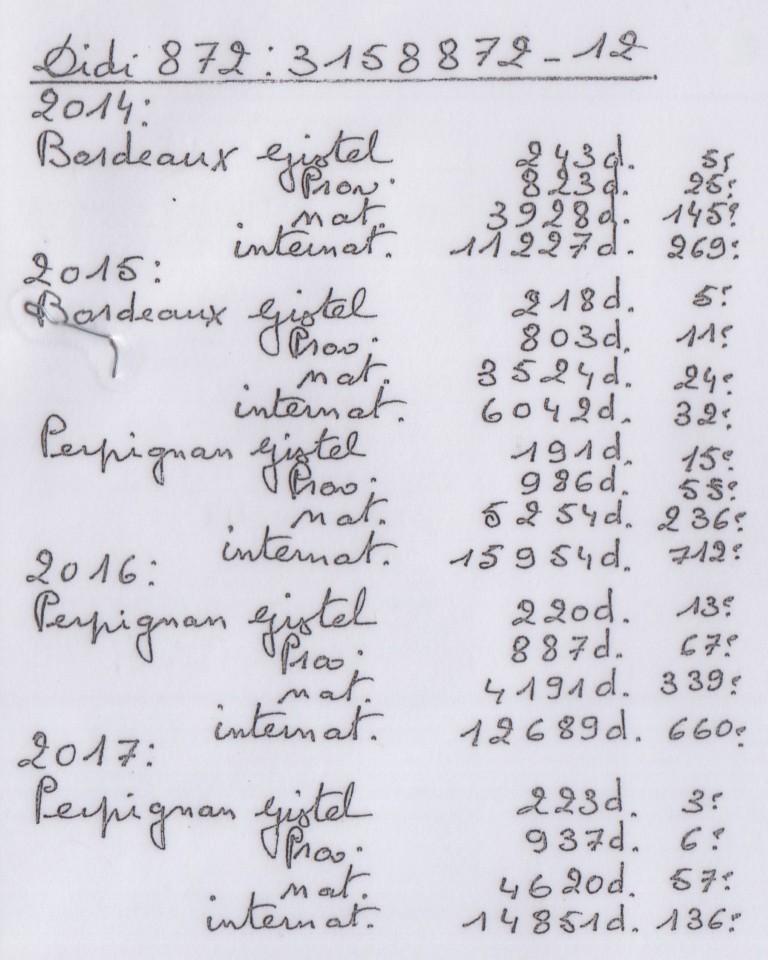 Didi 872: 3158872-12
2014:
Bordeaux Gistel 243d. 5e
Prov. 823d. 25e
nat. 3928d. 145e
internat. 11227d. 269e
2015:
Bordeaux Gistel 218d. 5e
Prov. 803d. 11e
nat. 3524d. 24e
internat. 6042d. 32e
Perpignan Gistel 191d. 15e
Prov. 986d. 55e
nat. 5254d. 236e
internat. 15954d. 712e
2016:
Perpignan Gistel 220d. 13e
Prov. 887d. 67e
nat. 4191d. 339e
internat. 12689d. 660e
2017:
Perpignan Gistel 223d. 3e
Prov. 937d. 6e
nat. 4620d. 57e
internat. 14851d. 136e